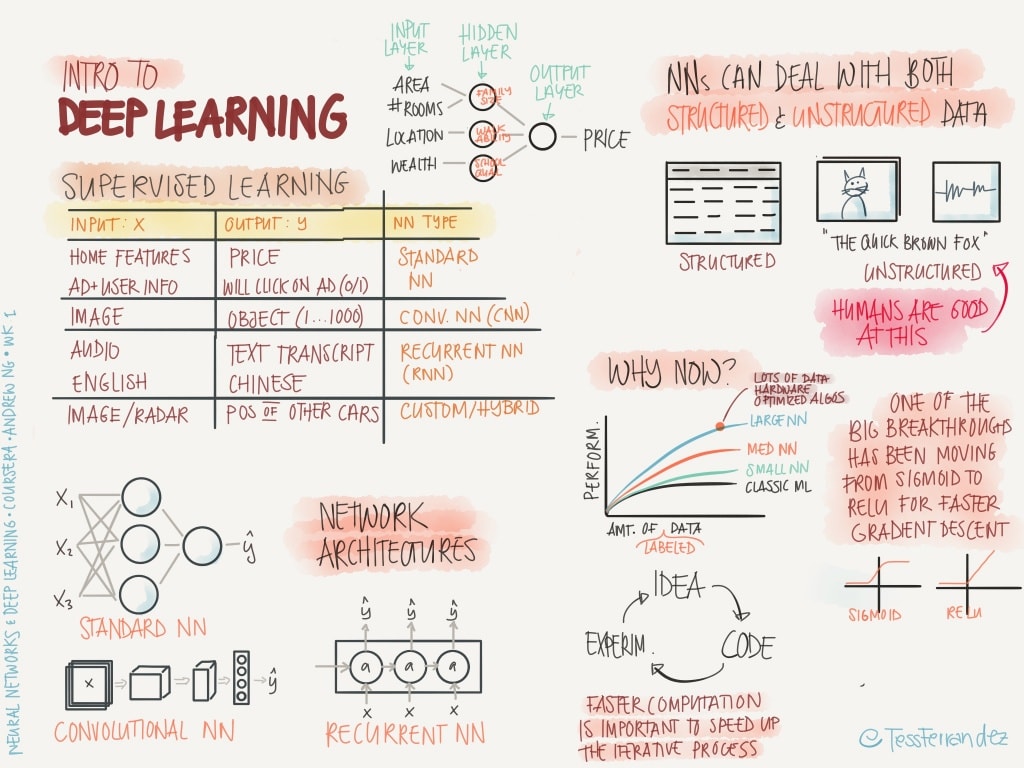 INTRO TO
DEEP LEARNING
INPUT
LAYER
HIDDEN
LAYER
OUTPUT
LAYER
AREA
#ROOMS
LOCATION
WEALTH
FAMILY
SIZE
WALK
ABILITY
SCHOOL
QUAL
PRICE
SUPERVISED LEARNING
INPUT: X OUTPUT: Y NN TYPE
HOME FEATURES PRICE STANDARD
AD+USER INFO WILL CLICK ON AD (0/1) NN
IMAGE OBJECT (1...1000) CONV. NN (CNN)
AUDIO TEXT TRANSCRIPT RECURRENT NN
ENGLISH CHINESE (RNN)
IMAGE/RADAR POS OF OTHER CARS CUSTOM/HYBRID
NNs CAN DEAL WITH BOTH
STRUCTURED & UNSTRUCTURED DATA
STRUCTURED
"THE QUICK BROWN FOX"
UNSTRUCTURED
HUMANS ARE GOOD
AT THIS
WHY NOW?
LOTS OF DATA
HARDWARE
OPTIMIZED ALGOS
LARGE NN
MED NN
SMALL NN
CLASSIC ML
PERFORM.
AMT. OF DATA
LABELED
ONE OF THE
BIG BREAKTHROUGHS
HAS BEEN MOVING
FROM SIGMOID TO
RELU FOR FASTER
GRADIENT DESCENT
SIGMOID
RELU
IDEA
CODE
EXPERIM.
FASTER COMPUTATION
IS IMPORTANT TO SPEED UP
THE ITERATIVE PROCESS
NETWORK
ARCHITECTURES
X1
X2
X3
ŷ
STANDARD NN
X
ŷ
CONVOLUTIONAL NN
ŷ ŷ ŷ
a a a
X X X
RECURRENT NN
NEURAL NETWORKS & DEEP LEARNING • COURSERA • ANDREW NG • WK 1
@TessFerrandez